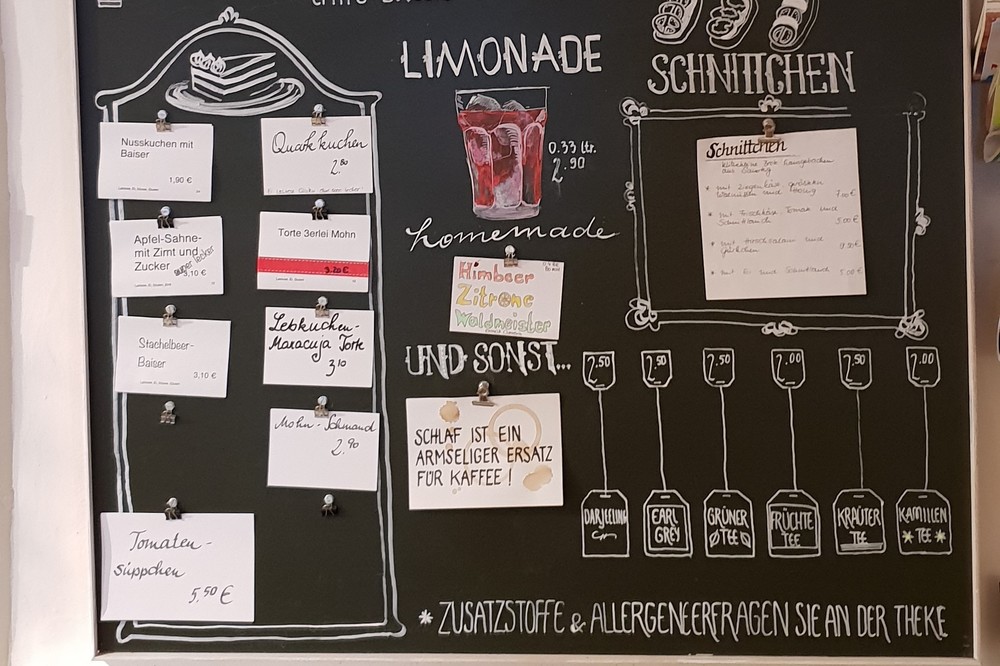 Nusskuchen mit
Baiser
1,90 €
Quarkkuchen
2.80
Apfel-Sahne-
mit Zimt und
Zucker
3,10 €
Torte 3erlei Mohn
3.20 €
Stachelbeer-
Baiser
3,10 €
Lebkuchen-
Maracuja Torte
3,10
Mohn-Schmand
2.90
Tomaten-
süppchen
5,50 €
LIMONADE
0.33 ltr.
2.90
homemade
Himbeer
Zitrone
Waldmeister
UND SONST...
SCHLAF IST EIN
ARMSELIGER ERSATZ
FÜR KAFFEE!
SCHNITTCHEN
Schnittchen
* mit Ziegenkäse
7,00 €
* mit Frischkäse Tomate und
Schnittlauch 5,00 €
* mit und
* mit Ei und Schnittlauch 5,00 €
2.50 2.50 2.50 2.00 2.50 2.00
DARJEELING EARL GREY GRÜNER TEE FRÜCHTE TEE KRÄUTER TEE KAMILLEN *TEE*
* ZUSATZSTOFFE & ALLERGENEERFRAGEN SIE AN DER THEKE